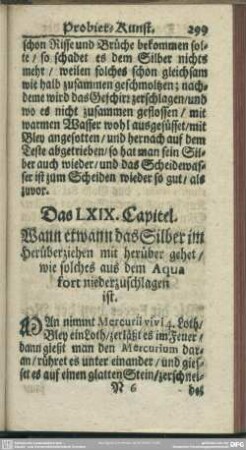 Probier-Kunst. 299
schon Risse und Brüche bekommen sol-
te/ so schadet es dem Silber nichts
mehr/ weilen solches schon gleichsam
wie halb zusammen geschmoltzen; nach-
deme wird das Geschirꝛ zerschlagen/ und
wo es nicht zusammen geflossen/ mit
warmen Wasser wohl ausgesüsset/ mit
Bley angesotten/ und hernach auf dem
Teste abgetrieben/ so hat man sein Sil-
ber auch wieder/ und das Scheidewas-
ser ist zum Scheiden wieder so gut/ als
zuvor.
Das LXIX. Capitel.
Wann etwann das Silber im
Herüberziehen mit herüber gehet/
wie solches aus dem Aqua
fort niederzuschlagen
ist.
MAn nimmt Mercurii vivi 4. Loth/
Bley ein Loth/ zerläßt es im Feuer/
dann gießt man den Mercurium dar-
an/ rühret es unter einander/ und gies-
set es auf einen glatten Stein/ zerschnei-
N 6 det